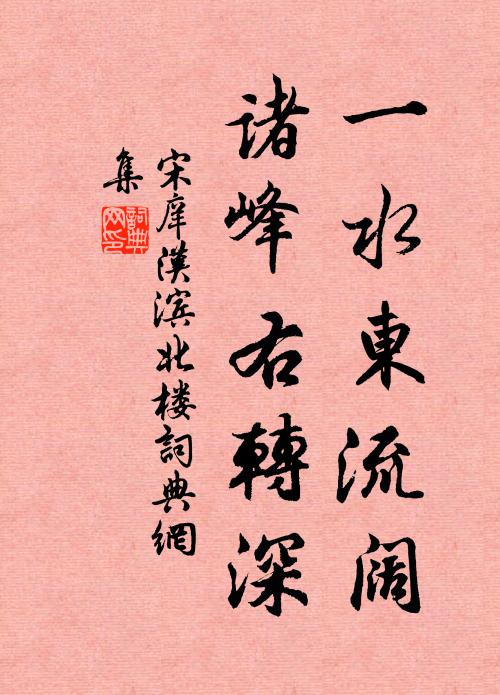 一水東流阔
諸峰右轉深
宋庠漢滨北楼詞典網
集
詞典网印